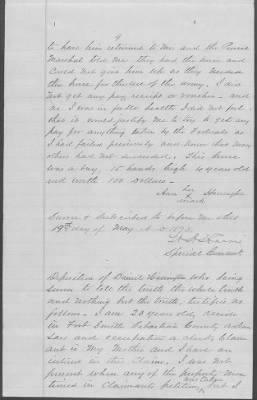 9
to have him returned to me and the Provost
Marshal told me they had the horse and
could not give him up as they needed
the horse for the use of the army. I did
not get any receipt or voucher - and
as I was in feeble health I did not feel
that it would justify me to try to get any
pay for anything taken by the Federals as
I had failed previously and knew that many
others had not succeeded. This horse
was a bay, 15 hands high 4 years old
and worth 150 Dollars -
Ann her X mark
Sworn & subscribed to before me this
19th day of May A.D. 1873.
Special Commr
Deposition of Daniel who being
sworn to tell the truth the whole truth
and nothing but the truth, testifies as
follows. I am 23 years old, reside
in Fort Smith Sebastian County Arkan
sas and occupation a clerk, Claim
ant is my Mother and I have an
interest in this Claim. I was not
present when any of the property men
tioned in Claimants petition was taken but I